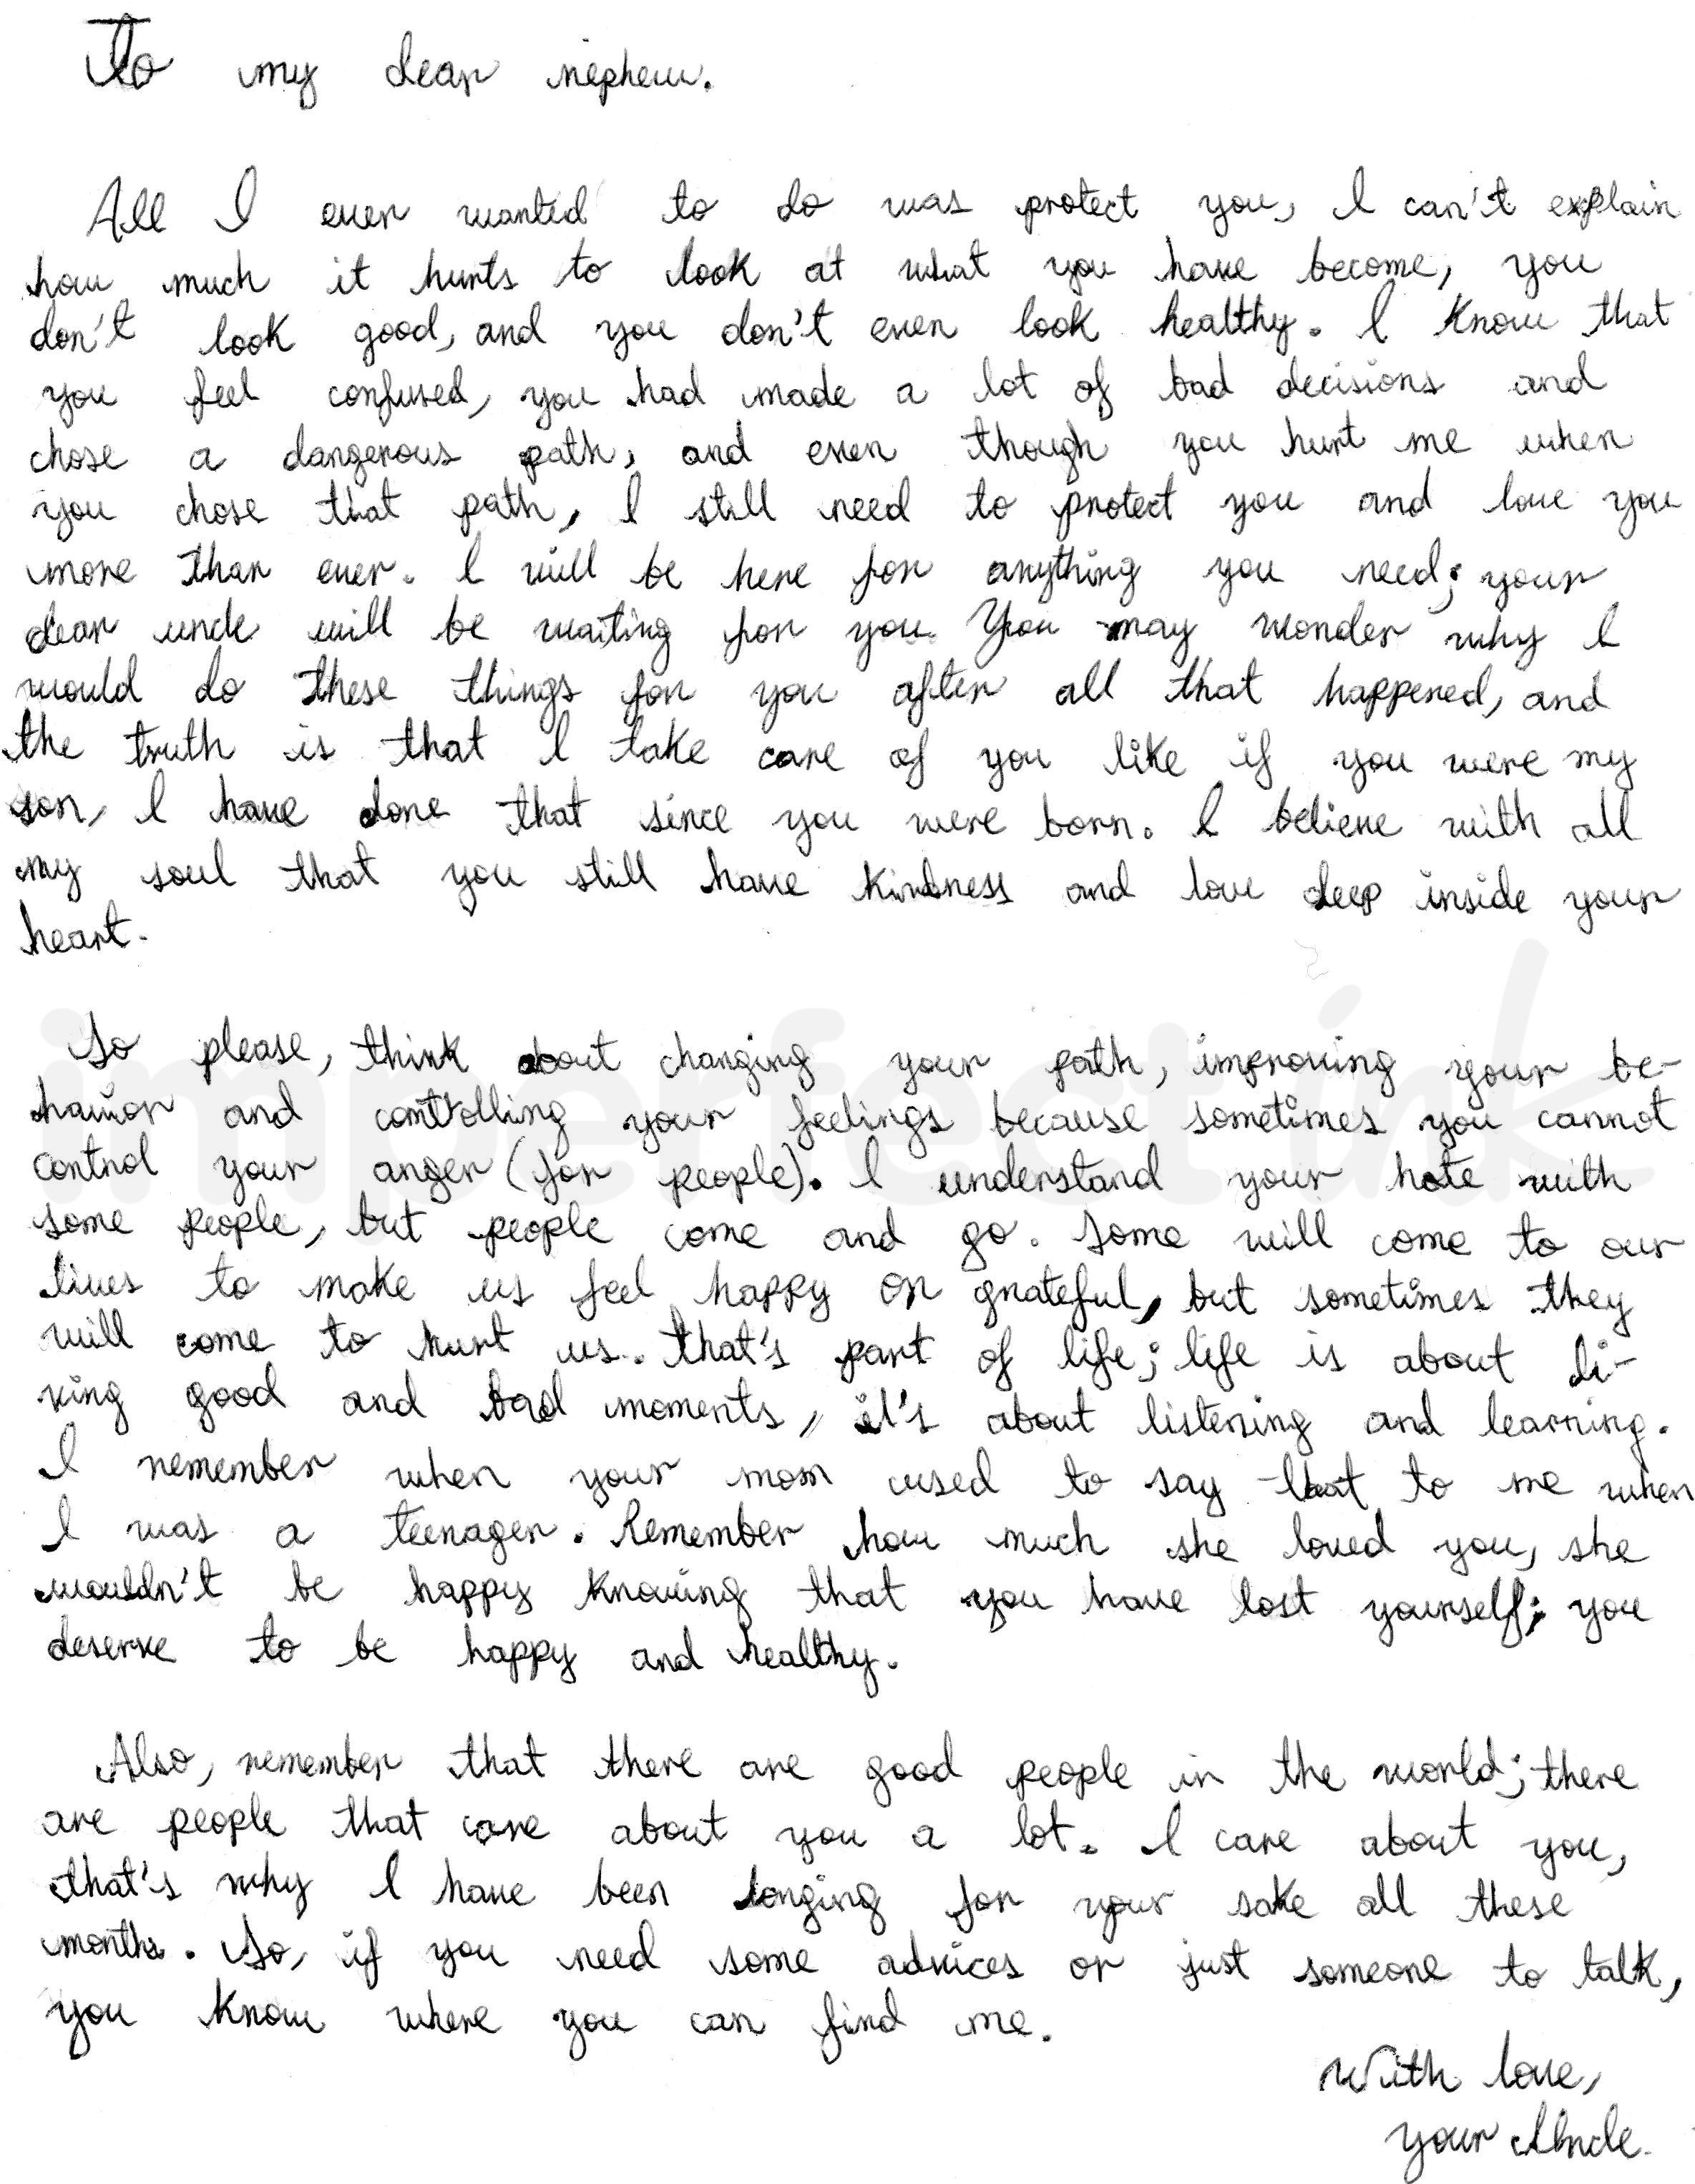 To my dear nephew.
All I ever wanted to do was protect you, I can't explain
how much it hurts to look at what you have become, you
don't look good, and you don't even look healthy. I know that
you feel confused, you had made a lot of bad decisions and
chose a dangerous path, and even though you hurt me when
you chose that path, I still need to protect you and love you
more than ever. I will be here for anything you need; your
dear uncle will be waiting for you. You may wonder why I
would do these things for you after all that happened, and
the truth is that I take care of you like if you were my
son, I have done that since you were born. I believe with all
my soul that you still have kindness and love deep inside your
heart.
So please, think about changing your path, improving your be-
havior and controlling your feelings because sometimes you cannot
control your anger (for people). I understand your hate with
some people, but people come and go. Some will come to our
lives to make us feel happy or grateful, but sometimes they
will come to hurt us. that's part of life; life is about li-
ving good and bad moments, it's about listening and learning.
I remember when your mom used to say that to me when
I was a teenager. Remember how much she loved you, she
wouldn't be happy knowing that you have lost yourself; you
deserve to be happy and healthy.
Also, remember that there are good people in the world; there
are people that care about you a lot. I care about you,
that's why I have been longing for your sake all these
months. So, if you need some advices or just someone to talk,
you know where you can find me.
With love,
your Uncle.
imperfect ink